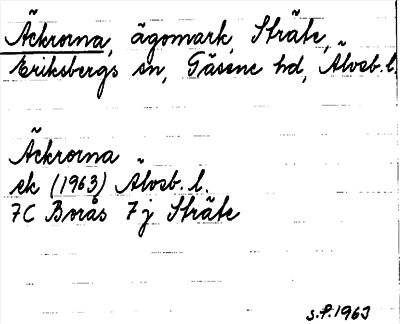 Äckrorna, ägomark, Sträte,
Eriksbergs sn, Gäsene hd, Älvsb. l.
Äckrorna
ek (1963) Älvsb. l.
7C Borås 7j Sträte
s.f. 1963